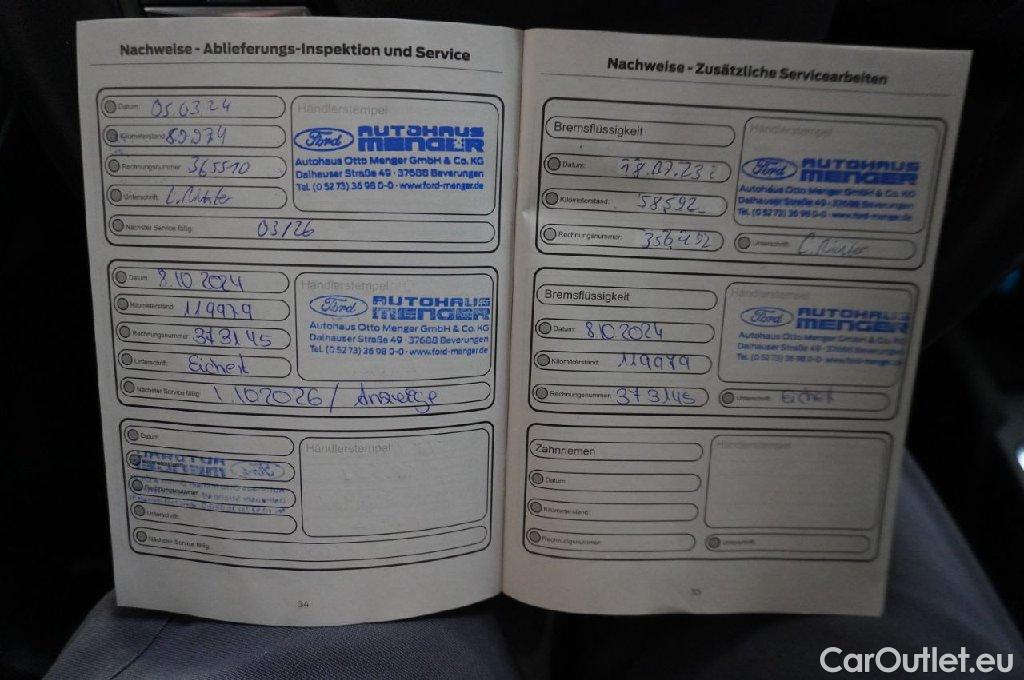 Nachweise - Ablieferungs-Inspektion und Service
Datum: 05.03.24
Kilometerstand: 89974
Rechnungsnummer: 365510
Unterschrift:
Nächster Service fällig: 03/26
Händlerstempel
Ford AUTOHAUS MENGER
Autohaus Otto Menger GmbH & Co. KG
Dalhauser Straße 49 · 37688 Beverungen
Tel. (0 52 73) 36 98 0-0 · www.ford-menger.de
Datum: 8.10.2024
Kilometerstand: 119979
Rechnungsnummer: 373145
Unterschrift: Eichert
Nächster Service fällig: 1.10.2026 / Anzeige
Händlerstempel
Ford AUTOHAUS MENGER
Autohaus Otto Menger GmbH & Co. KG
Dalhauser Straße 49 · 37688 Beverungen
Tel. (0 52 73) 36 98 0-0 · www.ford-menger.de
Datum:
Kilometerstand:
Rechnungsnummer:
Unterschrift:
Nächster Service fällig:
Händlerstempel
34
Nachweise - Zusätzliche Servicearbeiten
Bremsflüssigkeit
Datum: 18.07.23
Kilometerstand: 58592
Rechnungsnummer: 356452
Unterschrift:
Händlerstempel
Ford AUTOHAUS MENGER
Autohaus Otto Menger GmbH & Co. KG
Dalhauser Straße 49 · 37688 Beverungen
Tel. (0 52 73) 36 98 0-0 · www.ford-menger.de
Bremsflüssigkeit
Datum: 8.10.2024
Kilometerstand: 119979
Rechnungsnummer: 373145
Unterschrift: Eichert
Händlerstempel
Ford AUTOHAUS MENGER
Autohaus Otto Menger GmbH & Co. KG
Dalhauser Straße 49 · 37688 Beverungen
Tel. (0 52 73) 36 98 0-0 · www.ford-menger.de
Zahnriemen
Datum:
Kilometerstand:
Rechnungsnummer:
Unterschrift:
Händlerstempel
35
CarOutlet.eu